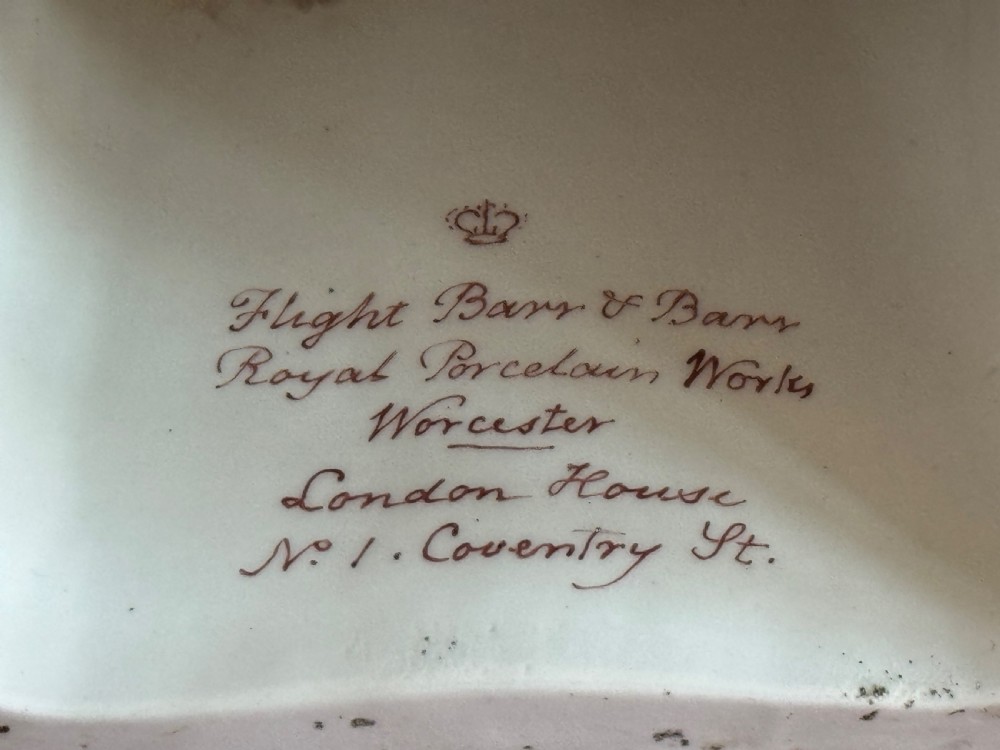 Flight Barr & Barr
Royal Porcelain Works
Worcester
London House
No. 1. Coventry St.